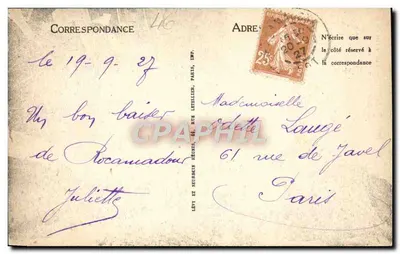 CORRESPONDANCE
ADRE
N'écrire que sur
le côté réservé à
la correspondance
25
20
27
le 19-9-27
Un bon baiser
de Rocamadour
Juliette
LÉVY ET NEURDEIN RÉUNIS, 44, RUE LETELLIER, PARIS, IMP.
Mademoiselle
Odette Laugé
61 rue de Javel
Paris
CPARAMA